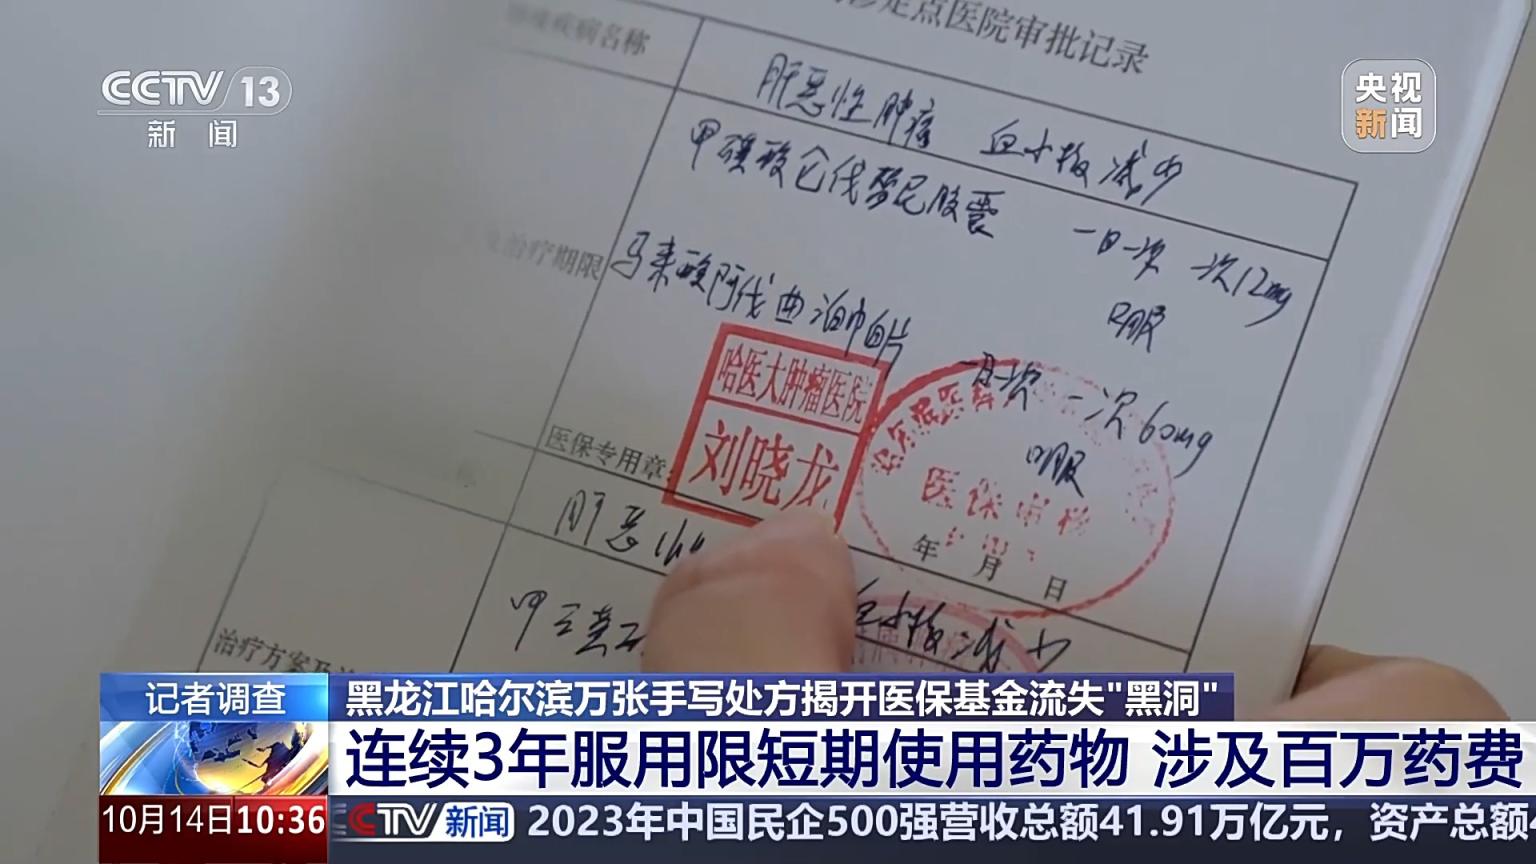 定点医院审批记录
疾病名称
肝恶性肿瘤 血小板减少
甲磺酸仑伐替尼胶囊 一日一次 一次12mg
口服
治疗期限
马来酸阿伐曲泊帕片
一日一次 一次60mg
口服
哈医大肿瘤医院
刘晓龙
医保专用章:
医保审核
年 月 日
肝恶
血小板减少
治疗方案及
CCTV 13
新闻
央视
新闻
记者调查
黑龙江哈尔滨万张手写处方揭开医保基金流失"黑洞"
连续3年服用限短期使用药物 涉及百万药费
10月14日10:36
CCTV新闻 2023年中国民企500强营收总额41.91万亿元，资产总额4